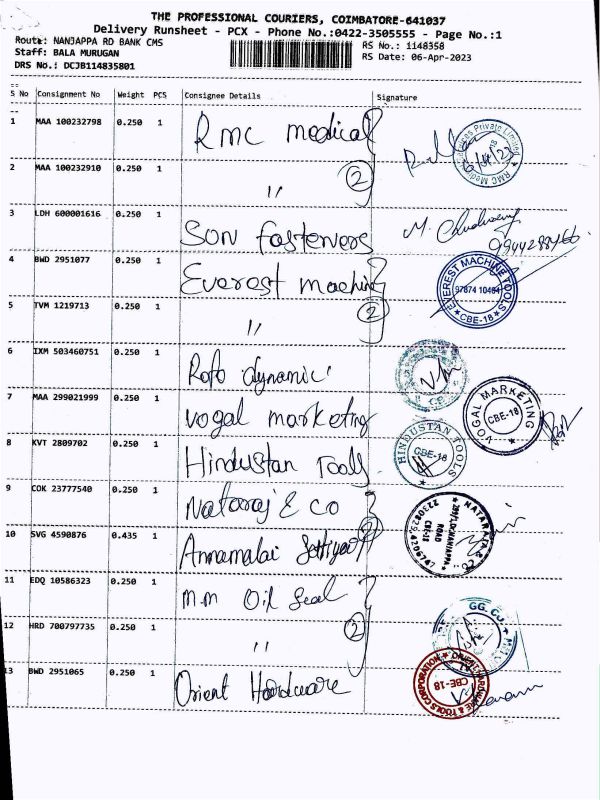 THE PROFESSIONAL COURIERS, COIMBATORE-641037
Delivery Runsheet - PCX - Phone No.:0422-3505555 - Page No.:1
Route: NANJAPPA RD BANK CMS
RS No.: 1148358
Staff: BALA MURUGAN
RS Date: 06-Apr-2023
DRS No.: DCJB114835801
S No Consignment No Weight PCS Consignee Details Signature
1 MAA 100232798 0.250 1 RMC medical
2 MAA 100232910 0.250 1 〃 2
3 LDH 600001616 0.250 1 SON fasteners
9944288466
4 BWD 2951077 0.250 1 Everest machine
EVEREST MACHINE TOOLS
97874 10464
CBE-18
5 TVM 1219713 0.250 1 〃 2
6 IXM 503460751 0.250 1 Roto dynamic
7 MAA 299021999 0.250 1 vogal marketing
VOGAL MARKETING
CBE-18
8 KVT 2809702 0.250 1 Hindustan Tools
HINDUSTAN TOOLS
CBE-18
9 COK 23777540 0.250 1 Nataraj & Co
10 SVG 4590876 0.435 1 Annamalai
11 EDQ 10586323 0.250 1 m.m Oil Seal
12 HRD 700797735 0.250 1 〃 2
13 BWD 2951065 0.250 1 Orient Hardware
ORIENT HARDWARE & TOOLS CORPORATION
CBE-18